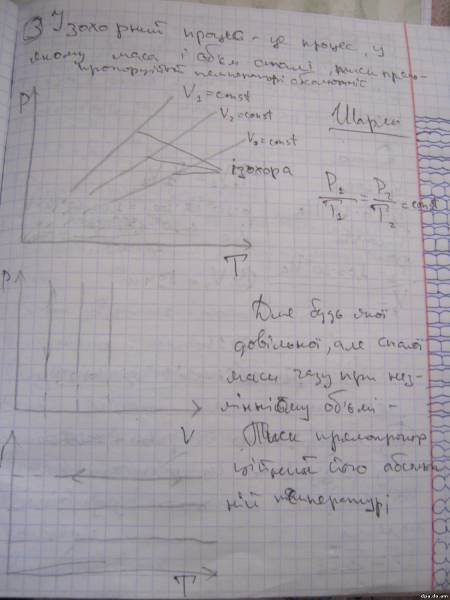 ③ Ізохорний процес - це процес, у
якому маса і об'єм сталі, тиск прямо-
пропорційній температурі абсолютній
P
V₁ = const
V₂ = const
V₃ = const
Шарль
ізохора
P₁/T₁ = P₂/T₂ = const
T
P
Для будь якої
довільної, але сталої
маси газу при нез-
мінніому об'ємі -
V
Тиск прямопропор
ційний його абсолют
ній температурі
T
dpa.do.am